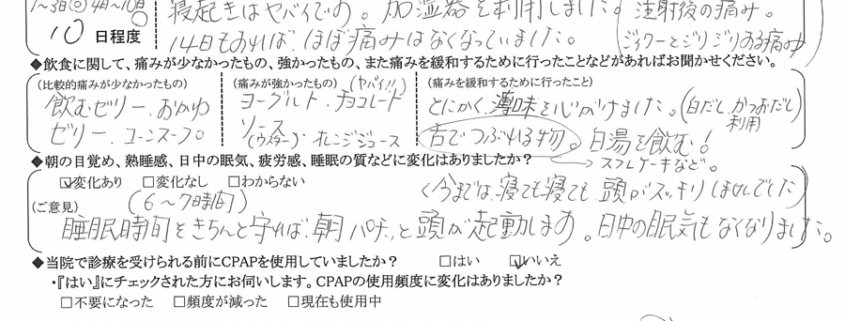 1〜3日◎ 4月〜10日
10 日程度
寝起きはヤバイです。加湿器を利用しました。
14日もあれば、ほぼ痛みはなくなっていました。
注射後の痛み。
ジィワーとジリジリある痛み
◆飲食に関して、痛みが少なかったもの、強かったもの、また痛みを緩和するために行ったことなどがあればお聞かせください。
(比較的痛みが少なかったもの)
飲むゼリー、おかゆ
ゼリー、コーンスープ。
(痛みが強かったもの) (ヤバイ!!)
ヨーグルト、チョコレート
ソース
(ウスター)、オレンジジュース
(痛みを緩和するために行ったこと)
とにかく、薄味を心がけました。(白だし、かつおだし)
利用
舌でつぶれる物。白湯を飲む!
→スフレケーキなど。
◆朝の目覚め、熟睡感、日中の眠気、疲労感、睡眠の質などに変化はありましたか?
☑変化あり □変化なし □わからない
(今までは、寝ても寝ても 頭がスッキリしませんでした)
(ご意見) (6〜7時間)
睡眠時間をきちんと守れば、朝パチッと頭が起動します。日中の眠気もなくなりました。
◆当院で診療を受けられる前にCPAPを使用していましたか? □はい ☑いいえ
・『はい』にチェックされた方にお伺いします。CPAPの使用頻度に変化はありましたか?
□不要になった □頻度が減った □現在も使用中